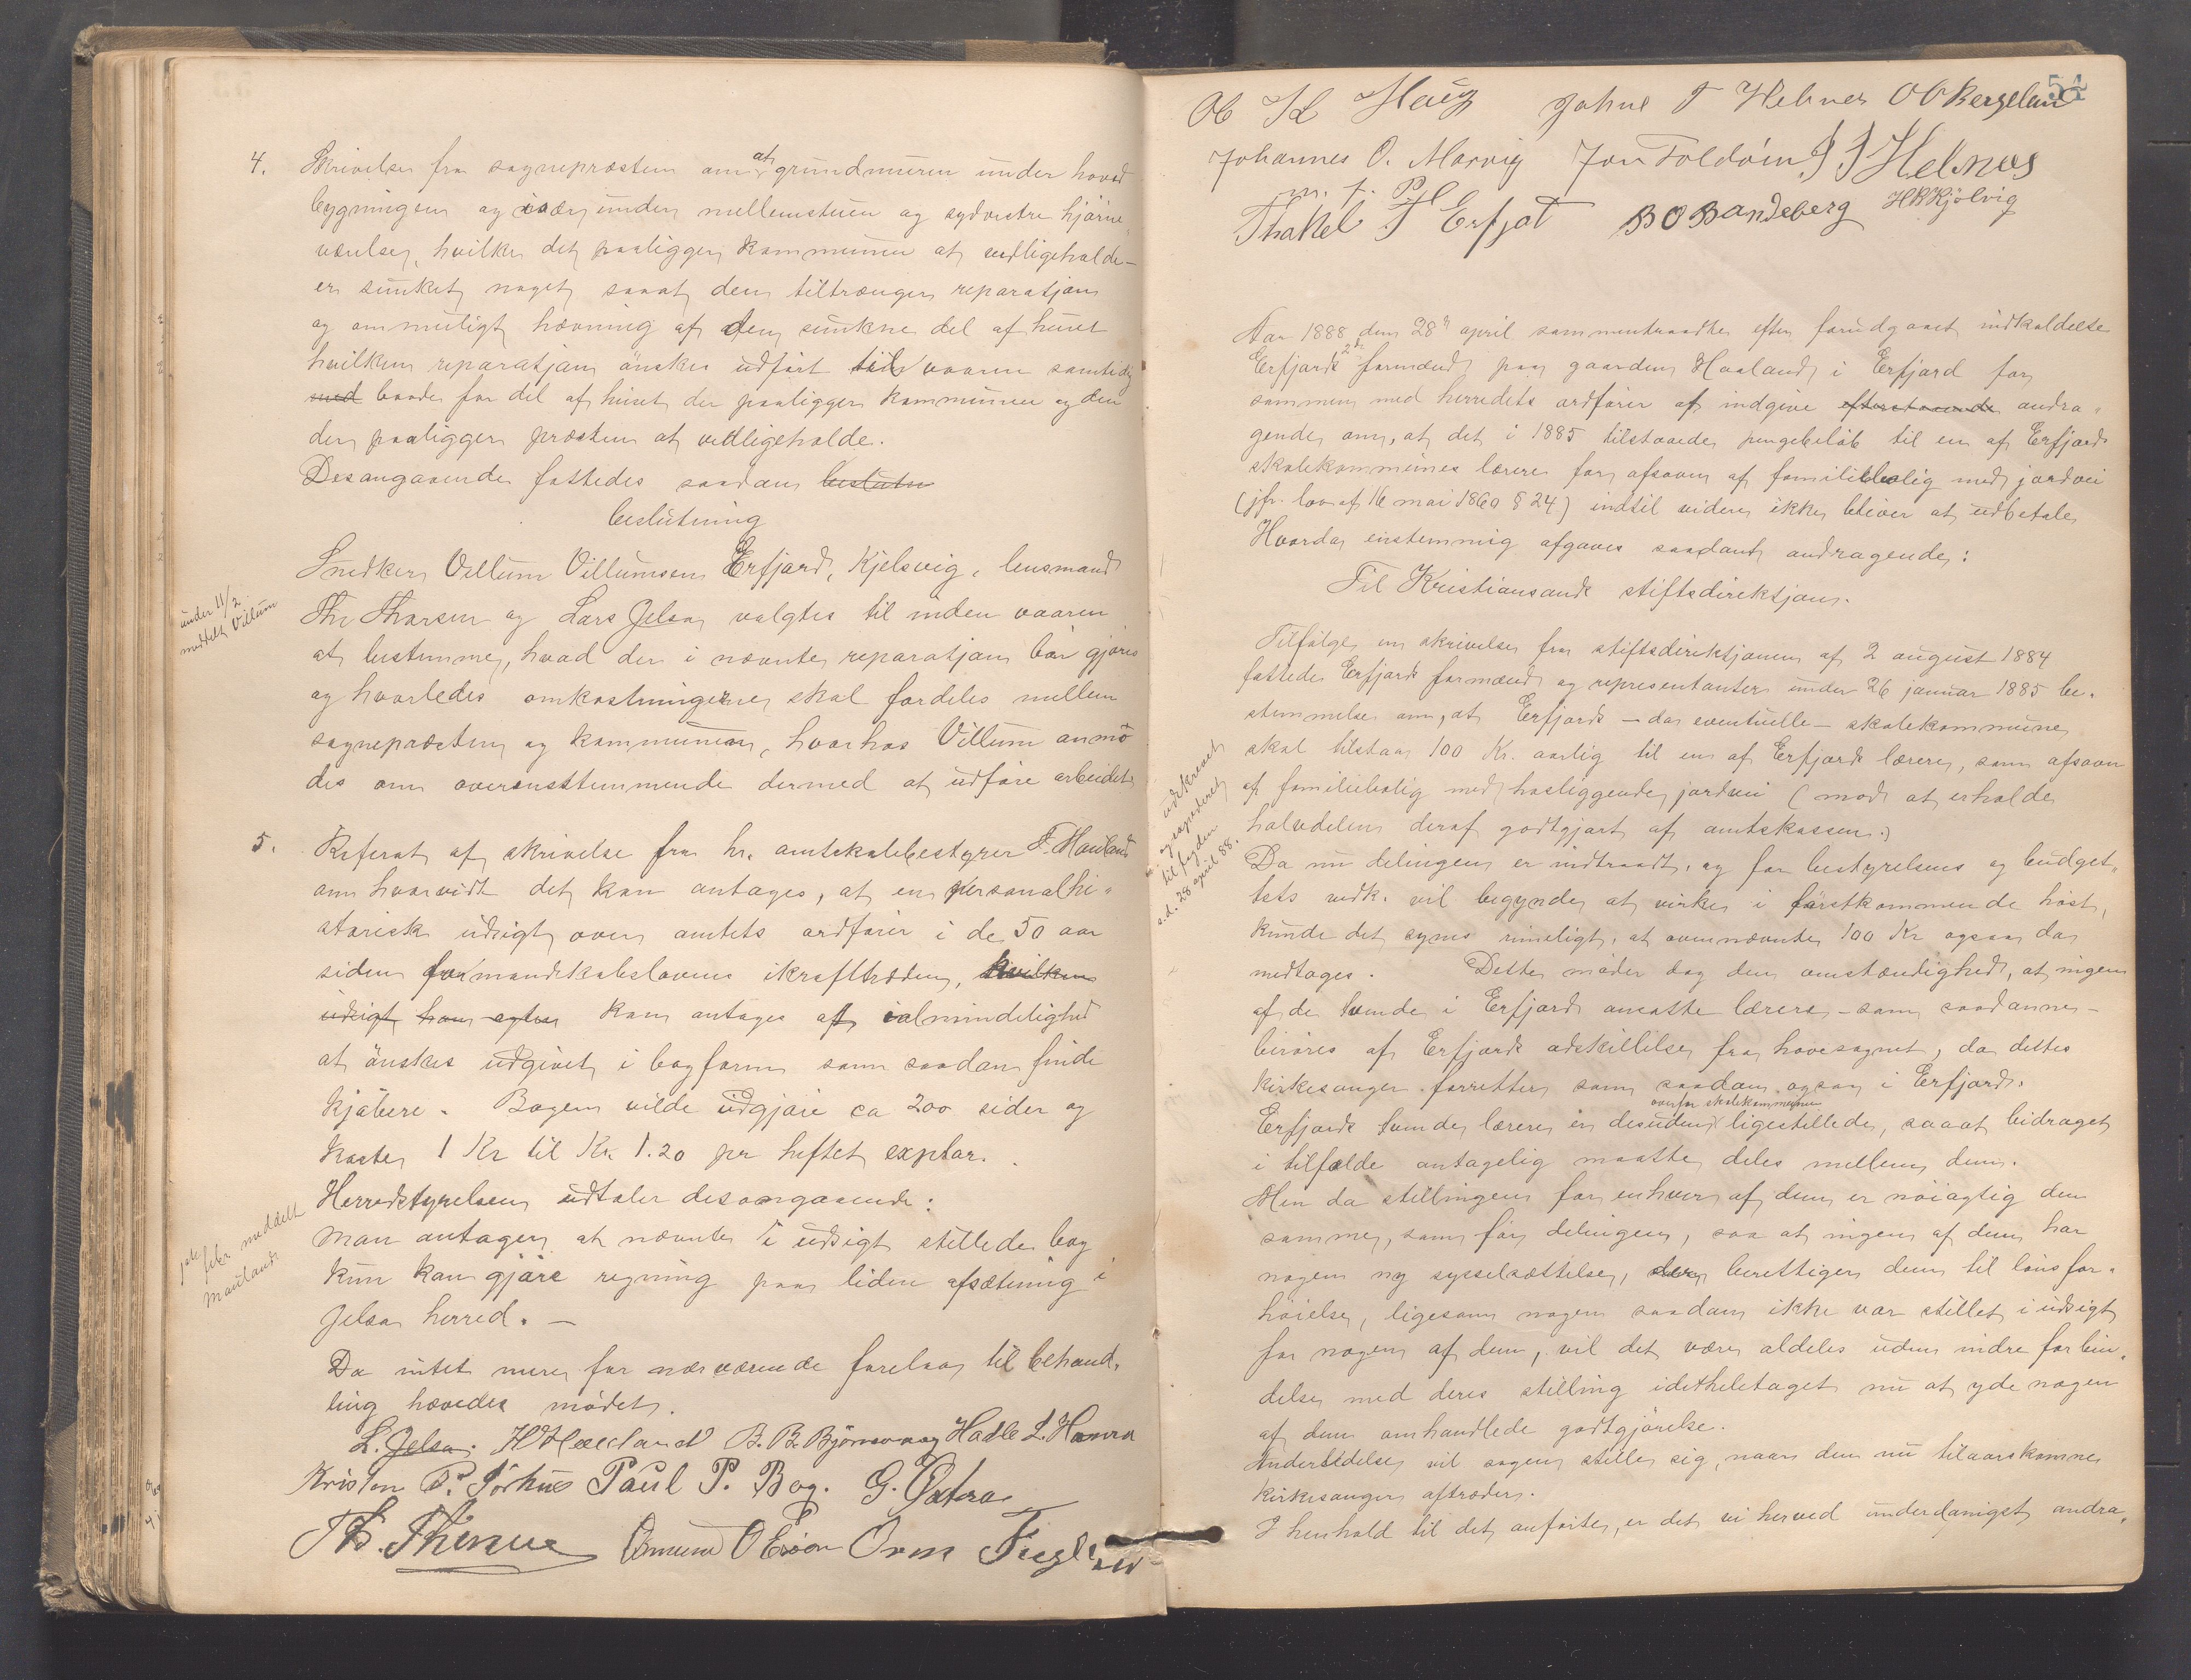 4. Skrivelse fra sognepræsten om at grundmuren under hoved
bygningen og især under mellemstuen og sydvestre hjörne
værelse, hvilke det paaligger kommunen at vedligeholde –
er sunket noget saaat den tiltrænger reparatjon
og om muligt hævning af den sunkne del af huset
hvilken reparatjon önskes udfört til vaaren samtidig
med baade for del af huset der paaligger kommunen og den
der paaligger præsten at vedligeholde.
Desangaaende fattedes saadan beslutn
beslutning
Snedker Villum Villumsen Erfjord, Kjelsvig, lensmand
Thr Tharsen og Lars Jelsa valgtes til inden vaaren
at bestemme, hvad der i nævnte reparatjon bör gjöres
og hvorledes omkostningerne skal fordeles mellem
sognepræsten og kommunen, hvorhos Villum anmo
des om overensstemmende dermed at udföre arbeidet
under 11/2
meddelt Villum
5. Referat af skrivelse fra hr. amtskolebestyrer F. Mauland
om hvorvidt det kan antages, at en personalhi-
storisk udsigt over amtets ordförer i de 50 aar
siden formandskabslovens ikrafttræden, hvilken
udsigt han agter kan antages af ialmindelighed
at önskes udgivet i bogform som saadan finde
kjöbere. Bogen vilde udgjöre ca 200 sider og
koste 1 Kr til Kr. 1.20 pr heftet explar.
Herredstyrelsen udtaler desangaaende:
Man antager at nævnte i udsigt stillede bog
kun kan gjöre regning paa liden afsætning i
Jelsa herred. –
febr. meddelt
Mauland
Da intet mere for nærværende forelaa til behand-
ling hævedes mödet.
L. Jelsa. H Hæeland B. B. Björnevaag Hadle L. Hamra
Kristen P. Törhus Paul P. Bog. G. Østraa
Th. Thimue Omund O Eidem Orm Fuglestein
54
Ob K L Haug Johne T Helnes O O Bergeland
Johannes O. Marvig Jon Foldöin J J Helnes
m. f. P.
Thakel T Erfjot B O Bandeberg H K Kjölvig
Aar 1888 den 28de april sammentraadte efter forudgaaet indkaldelse
Erfjords 2de formænd paa gaarden Haaland i Erfjord for
sammen med herredets ordförer at indgive efterstaaende andra-
gende om, at det i 1885 tilstaaede pengebelöb til en af Erfjords
skolekommunes lærere for afsavn af familiebolig med jordvei
(jfr. lov af 16 mai 1860 § 24) indtil videre ikke bliver at udbetale
Hvorda enstemmig afgaves saadant andragende:
Til Kristiansands stiftsdirektjon.
Tilfölge en skrivelse fra stiftsdirektjonen af 2 august 1884
fattede Erfjords formænd og representanter under 26 januar 1885 be-
stemmelse om, at Erfjords – da eventuelle – skolekommune
skal tilstaa 100 Kr. aarlig til en af Erfjords lærere, som afsavn
af familiebolig med hosliggende jordvei (mod at erholde
halvdelen deraf godtgjort af amtskassen.)
Da nu delingen er indtraadt, og for bestyrelsens og budget-
tets vedk. vil begynde at virke i förstkommende höst,
kunde det synes rimeligt, at ovennævnte 100 Kr ogsaa da
medtages. Dette möder dog den omstændighed, at ingen
af de tvende i Erfjord ansatte lærere – som saadanne –
beröres af Erfjords adskillelse fra hovesognet, da dettes
kirkesanger forretter som saadan ogsaa i Erfjord.
Erfjords tvende lærere er desuden overfor skolekommunen ligestillede, saaat bidraget
i tilfælde antagelig maatte deles mellem dem.
Men da stillingen for enhver af dem er nöiagtig den
samme, som för delingen, saa at ingen af dem har
nogen ny sysselsættelse, der berettiger dem til löns for-
höielse, ligesom nogen saadan ikke var stillet i udsigt
for nogen af dem, vil det være aldeles uden indre forbin-
delse med deres stilling idetheletaget nu at yde nogen
af dem omhandlede godtgjörelse.
Anderledes vil sagen stille sig, naar den nu tilaarskomne
kirkesanger aftræder.
I henhold til det anförte, er det vi herved underdanigst andra-
udskrevet
og expederet
til fogden
s. d. 28 april 88.